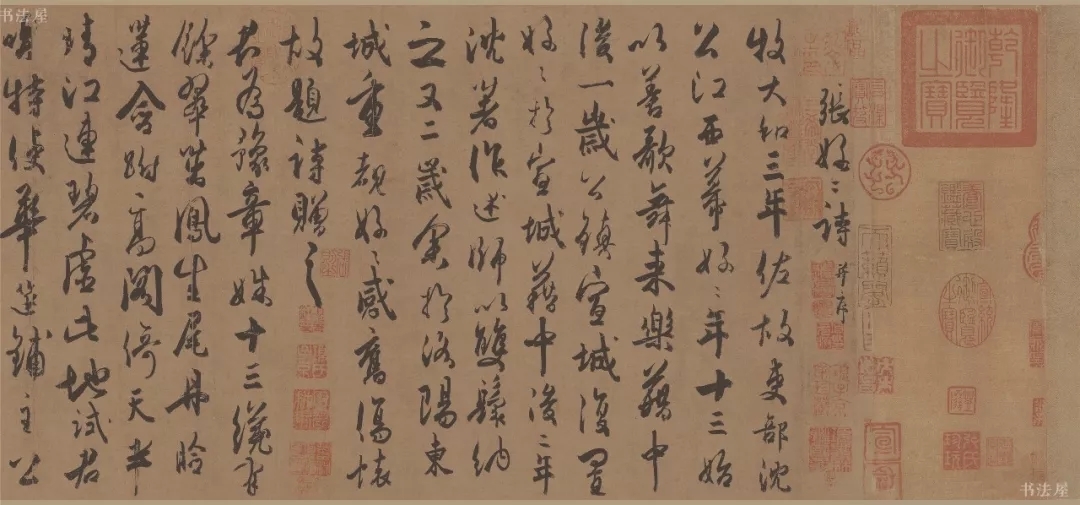 乾隆御覽之寶
張好〻詩 并序
牧大和三年佐故吏部沈
公江西幕好〻年十三始
以善歌舞来樂籍中
後一歲公鎮宣城復置
好〻於宣城籍中後二年
沈著作述師以雙鬟納
之又二歲余於洛陽東
城重覩好〻感舊傷懷
故題詩贈之
君為豫章姝十三纔有
餘翠茁鳳生尾丹臉
蓮含跗高閣倚天半
晴江連碧虛此地試君
唱特使華筵鋪主公
书法屋
书法屋